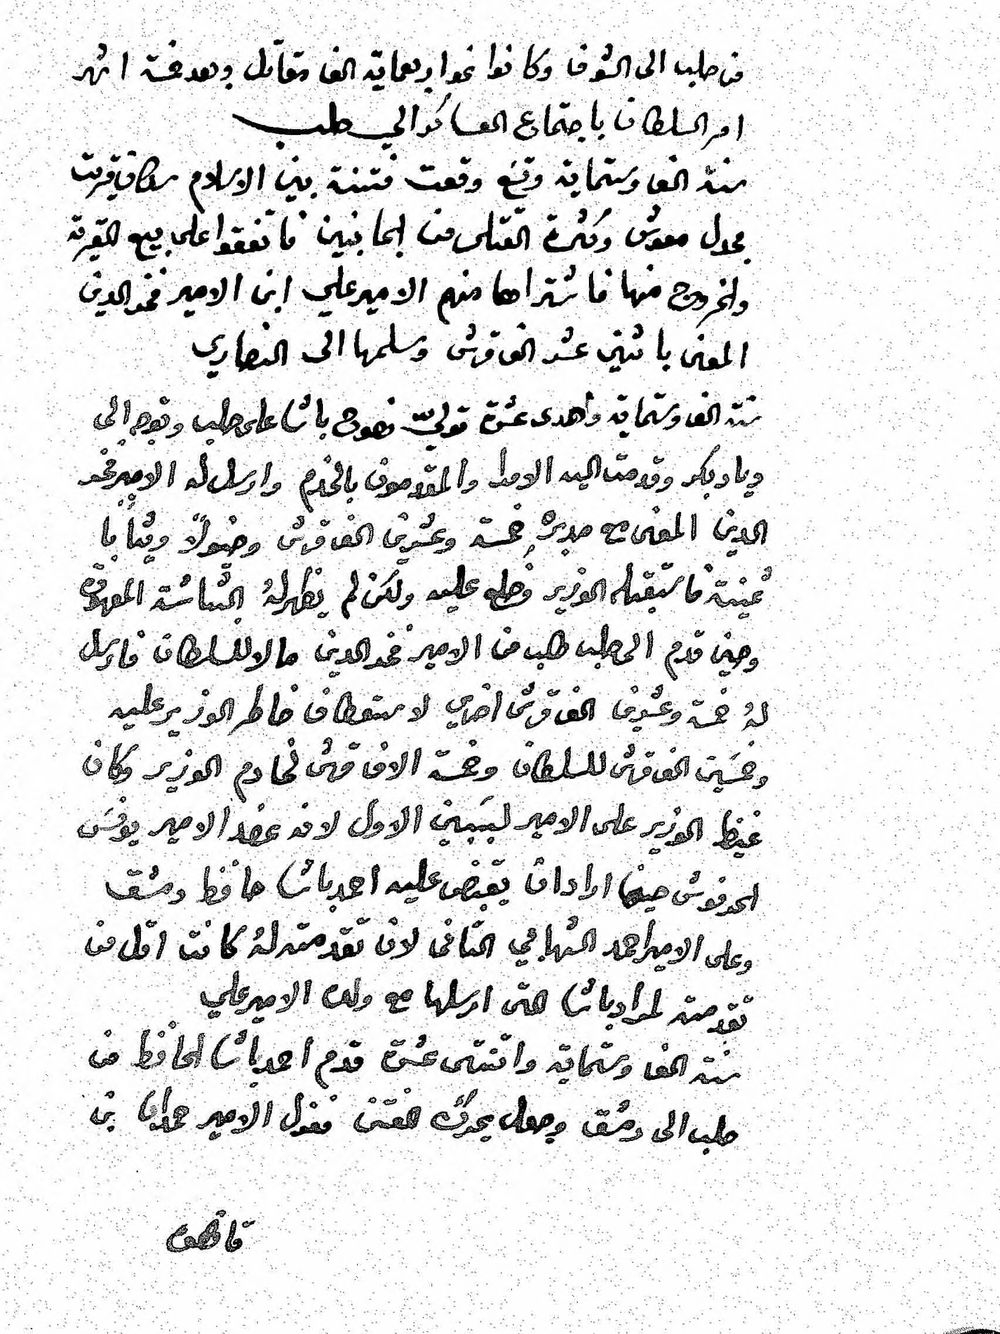 من حلب الى الشوف وكانوا نحو اربعماية الف مقاتل وبعد خمسة اشهر
امر السلطان باجتماع العساكر الي حلب
سنة الف وستماية وتسع وقعت فتنة بين الاسلام سكان قرية
مجدل معوش وكثرة القتلى من الجانبين فاتفقوا على بيع القرية
والخروج منها فاشتراها منهم الامير علي ابن الامير فخر الدين
المعنى باثني عشر الف قرش وسلمها الى النصارى
سنة الف وستماية واحدى عشرة تولي نصوح باشا على حلب وتوجه الى
ديار بكر وقدمت اليه الامرا والمقدمون بالخدم وارسل له الامير فخر
الدين المعنى مع مدبره خمسة وعشرين الف قرش وخيولاً وثياباً
ثمينة فاستقبله الوزير وخلع عليه ولكن لم يظهر له البشاشة المعهودة
وحين قدم الى حلب طلب من الامير فخر الدين مالا للسلطان فارسل
له خمسة وعشرين الف قرش اخرى لاستعطاف خاطر الوزير عليه
وخمسين الف قرش للسلطان وخمسة الاف قرش لخادم الوزير وكان
غيظ الوزير على الامير لسببين الاول لانه عضد الامير يونس
الحرفوش حينما اراد ان يقبض عليه احمد باشا حافظ دمشق
وعلى الامير احمد الشهابي الثانى لان تقدمته له كانت اقل من
تقدمته لمراد باشا التى ارسلها مع ولده الامير علي
سنة الف وستماية واثنتى عشرة قدم احمد باشا الحافظ من
حلب الى دمشق وجعل يحرك الفتن فعزل الامير حمدان بن
قانصوه